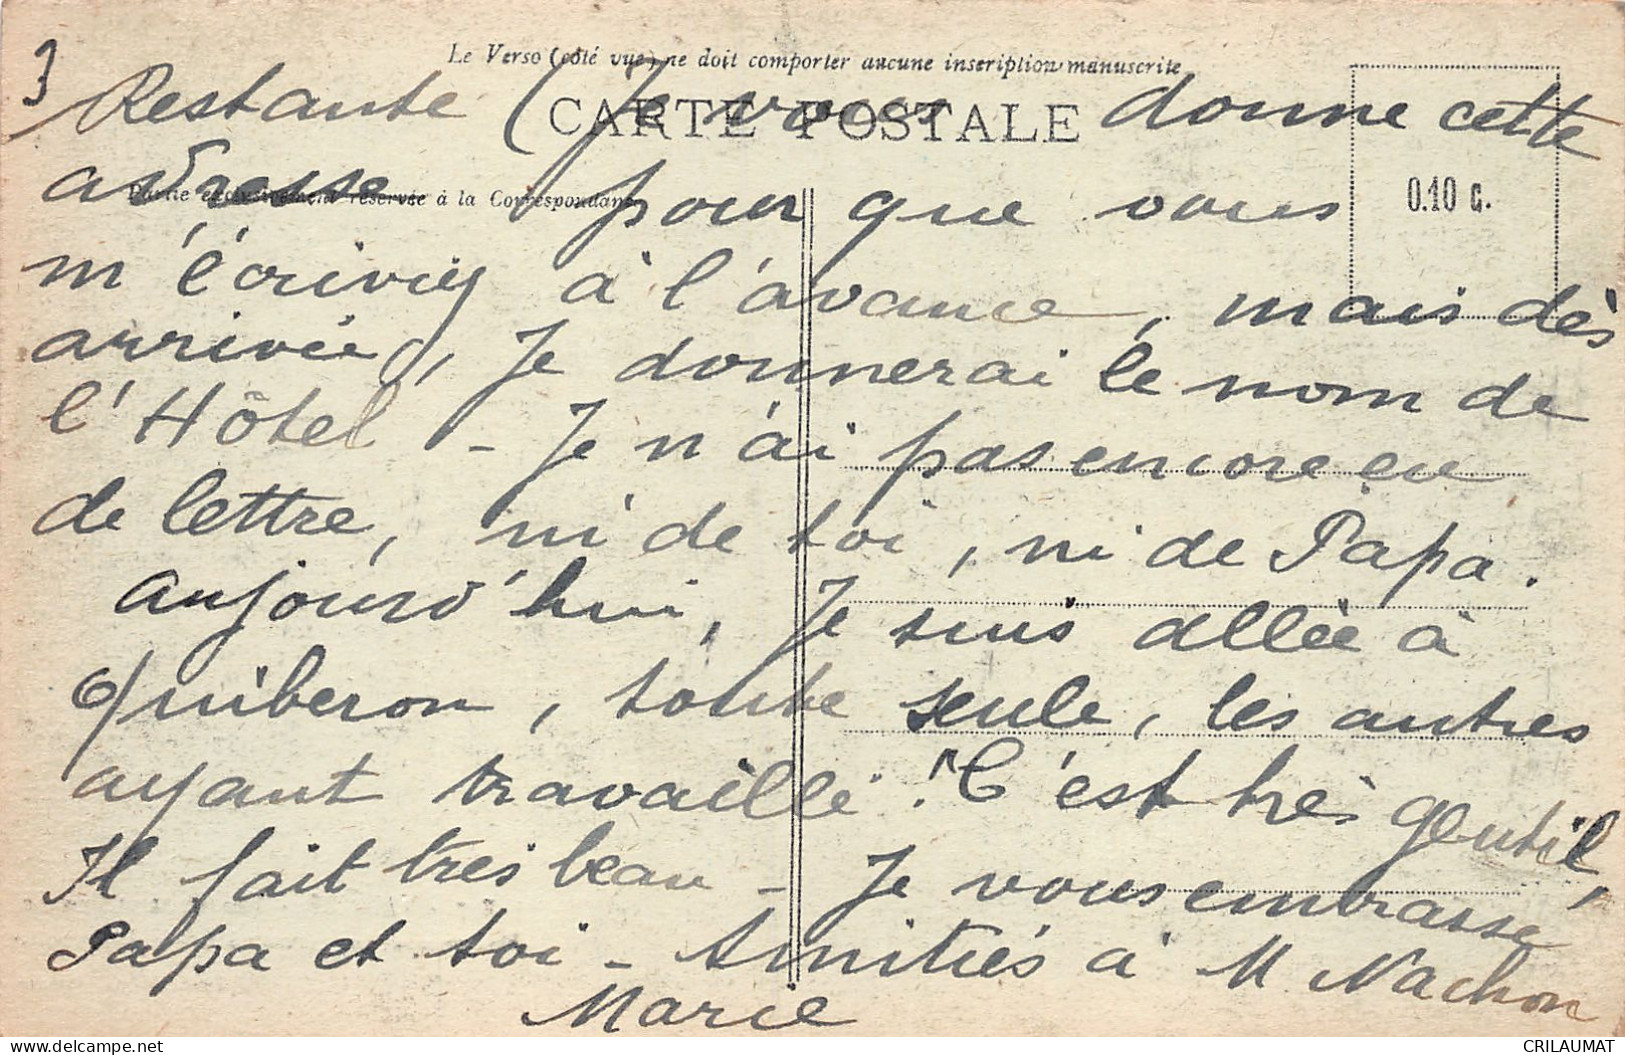 3
Le Verso (côté vue) ne doit comporter aucune inscription manuscrite
CARTE POSTALE
Restante (Je vous donne cette
Partie exclusivement réservée à la Correspondance
0.10 c.
adresse pour que vous
m'écriviez à l'avance, mais dès
arrivée, Je donnerai le nom de
l'Hôtel - Je n'ai pas encore eu
de lettre, ni de toi, ni de Papa.
aujourd'hui, Je suis allée à
Quiberon, toute seule, les autres
ayant travaillé! C'est très gentil,
Il fait très beau - Je vous embrasse
Papa et toi - Amitiés à M Nachon
Marie
CRILAUMAT
delcampe.net